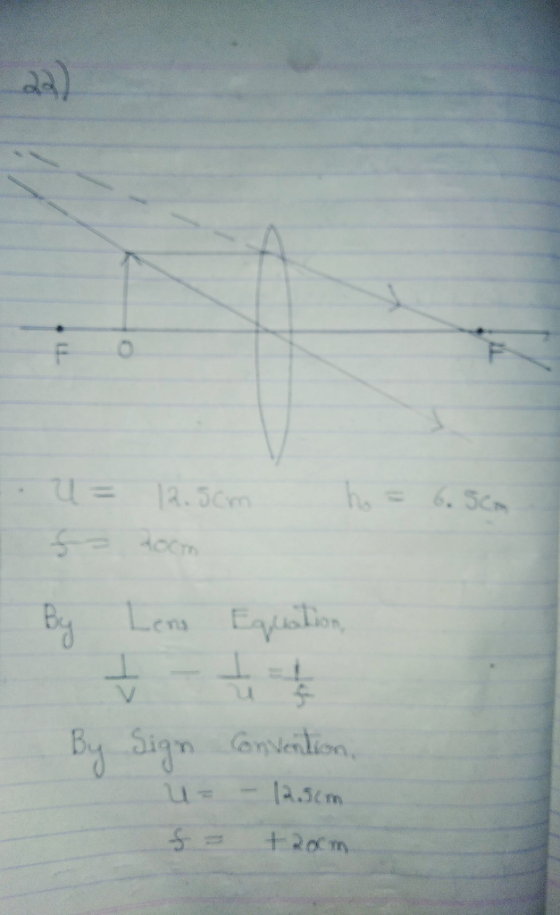 22)
F O F
u = 12.5cm h₀ = 6.5cm
f = 20cm
By Lens Equation,
1/v - 1/u = 1/f
By Sign Convention.
u = - 12.5cm
f = +20cm